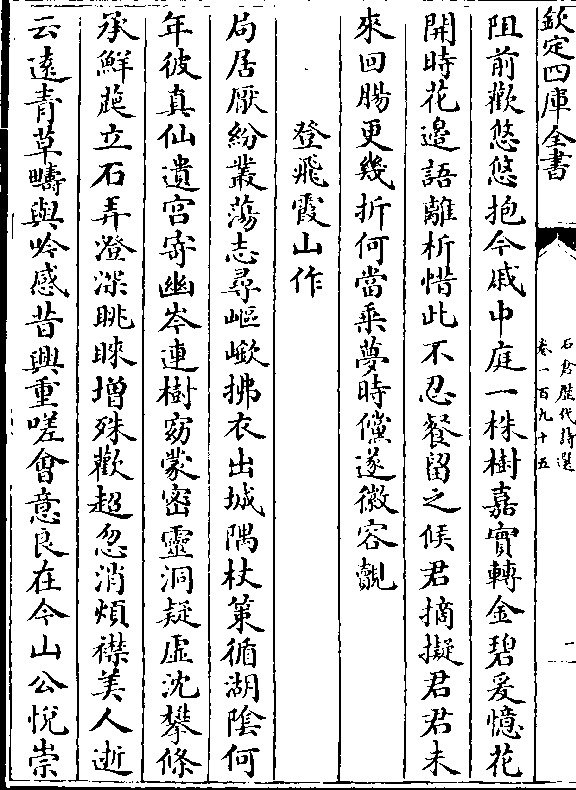 欽定四庫全書
石倉歷代詩選
卷一百九十五
一
阻前歡悠悠抱今戚中庭一株樹嘉實轉金碧爰憶花
開時花邊語離析惜此不忍餐留之候君摘擬君君未
來回腸更幾折何當乗夢時儻遂徽容覿
登飛霞山作
局居厭紛叢蕩志尋嶇嶔拂衣出城隅杖策循湖陰何
年彼真仙遺宫寄幽岑連樹窈蒙密靈洞疑虛沈攀條
承鮮葩立石弄澄深眺睞增殊歡超忽消煩襟美人逝
云遠青草疇與吟感昔興重嗟會意良在今山公悅崇